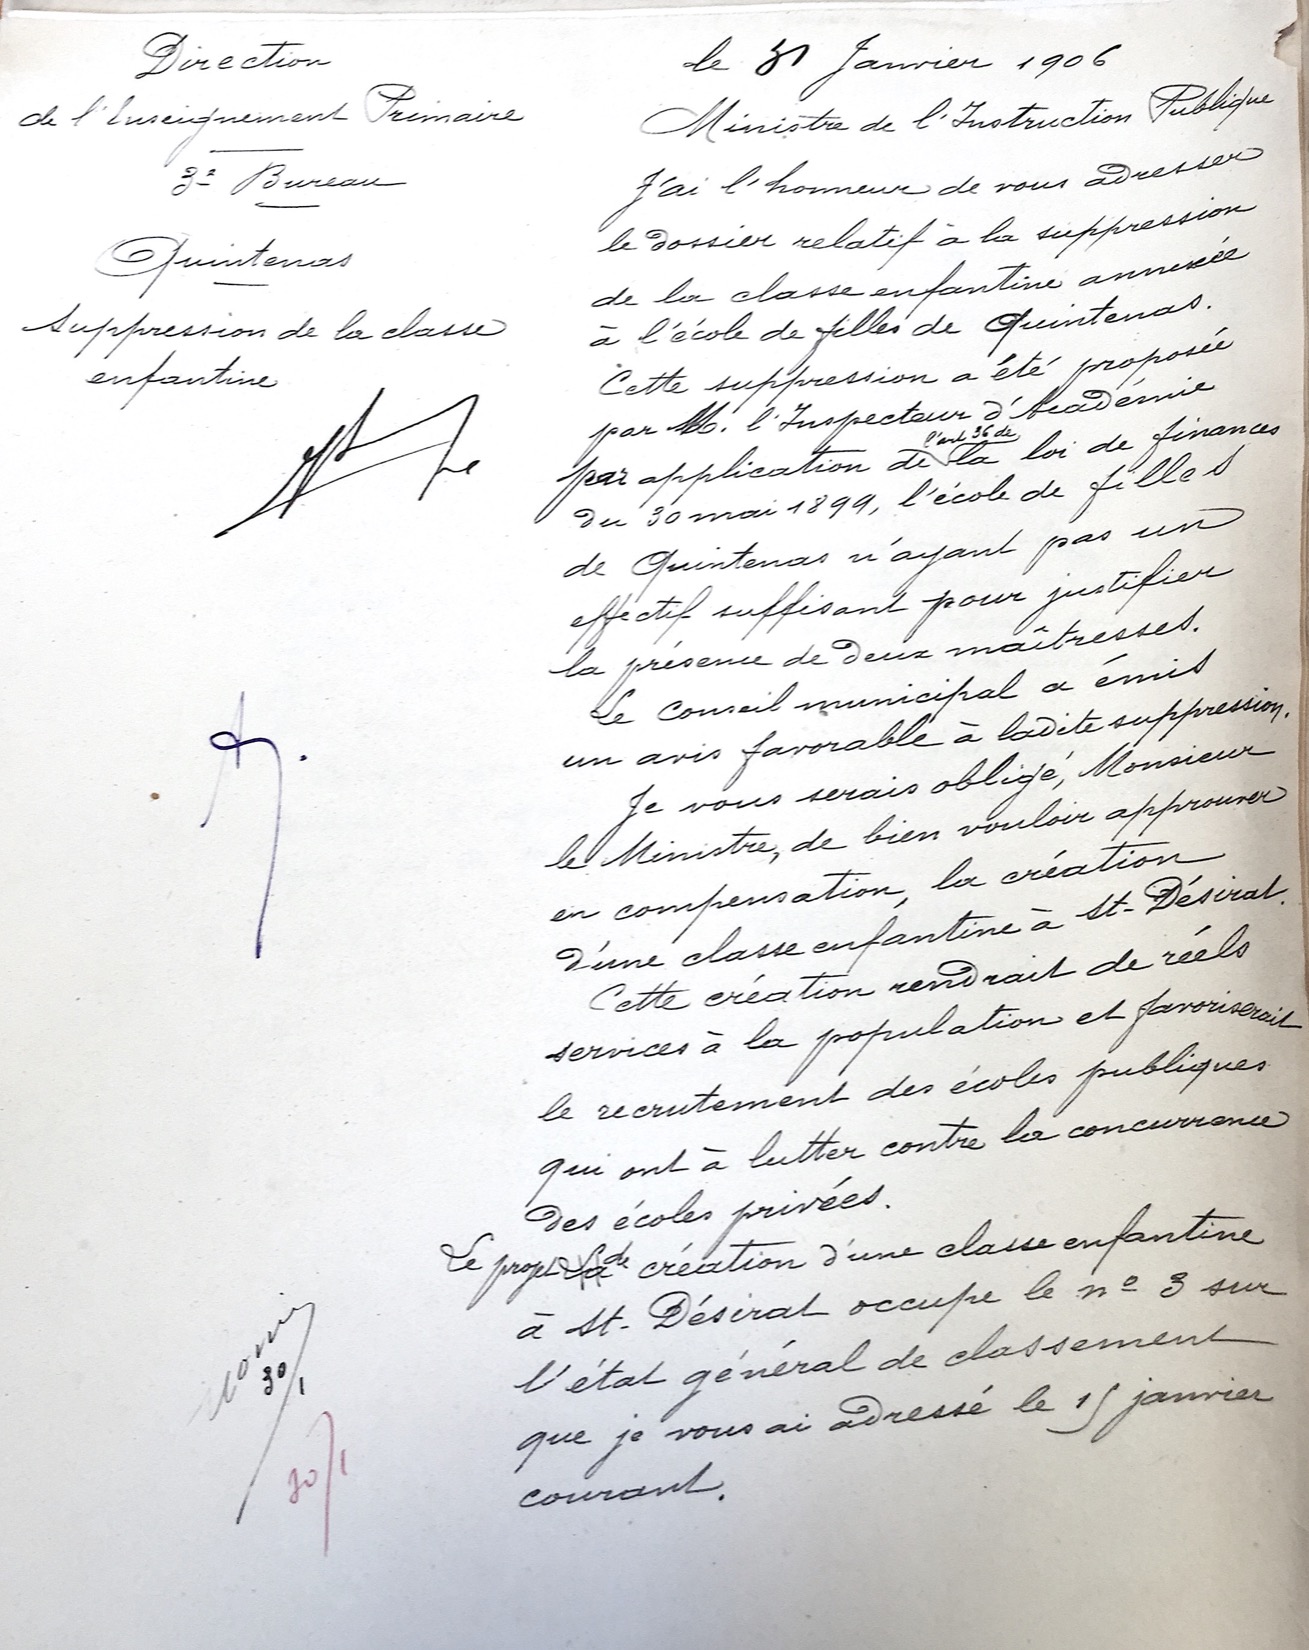 Direction
de l'Enseignement Primaire
3e Bureau
Quintenas
Suppression de la classe
enfantine
le 31 Janvier 1906
Ministre de l'Instruction Publique
J'ai l'honneur de vous adresser
le dossier relatif à la suppression
de la classe enfantine annexée
à l'école de filles de Quintenas.
Cette suppression a été proposée
par M. l'Inspecteur d'Académie
par application de l'art 36 de la loi de finances
du 30 mai 1899, l'école de filles
de Quintenas n'ayant pas un
effectif suffisant pour justifier
la présence de deux maîtresses.
Le Conseil municipal a émis
un avis favorable à ladite suppression.
Je vous serais obligé, Monsieur
le Ministre, de bien vouloir approuver
en compensation, la création
d'une classe enfantine à St-Désirat.
Cette création rendrait de réels
services à la population et favoriserait
le recrutement des écoles publiques
qui ont à lutter contre la concurrence
des écoles privées.
Le projet de création d'une classe enfantine
à St-Désirat occupe le no 3 sur
l'état général de classement
que je vous ai adressé le 15 janvier
courant.
30/1
30/1